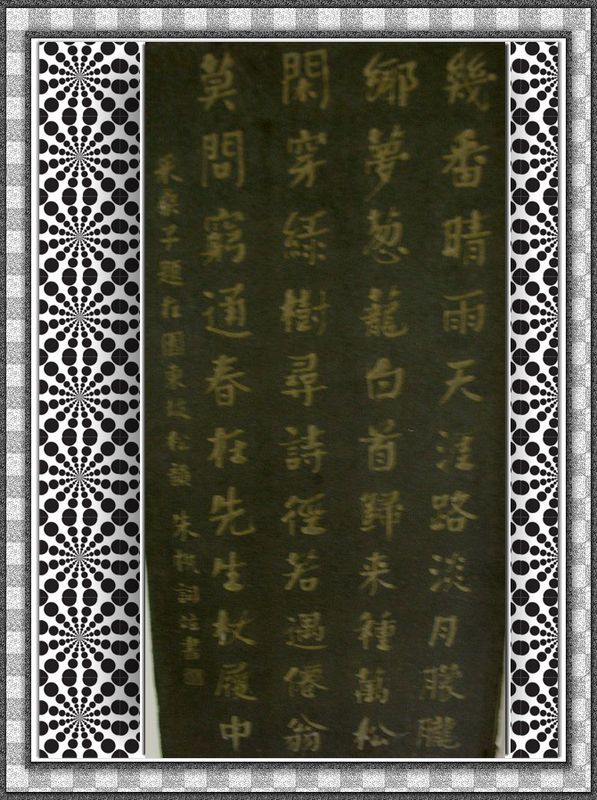 幾番晴雨天涯路淡月朦朧
鄉夢葱蘢白首歸来種萬松
閑穿綠樹尋詩徑若遇僊翁
莫問窮通春在先生杖履中
采桑子題在園東坡松韻 朱詞書